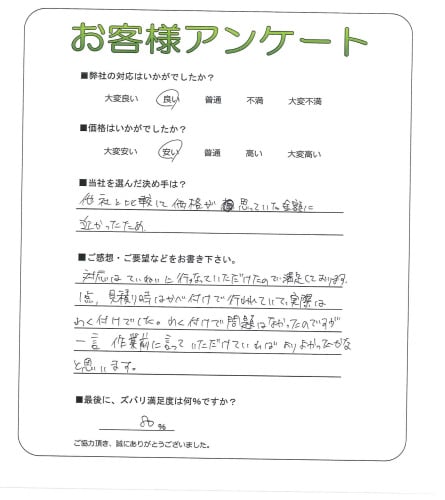 お客様アンケート
■弊社の対応はいかがでしたか?
大変良い 良い 普通 不満 大変不満
■価格はいかがでしたか?
大変安い 安い 普通 高い 大変高い
■当社を選んだ決め手は?
他社と比較して価格が思っていた金額に
近かったため
■ご感想・ご要望などをお書き下さい。
対応はていねいに行なっていただけたので満足しております。
1点、見積り時はかべ付けで行われていて、実際は
わく付けでした。わく付けで問題はなかったのですが
一言 作業前に言っていただけていればよりよかったかな
と思います。
■最後に、ズバリ満足度は何%ですか?
80 %
ご協力頂き、誠にありがとうございました。